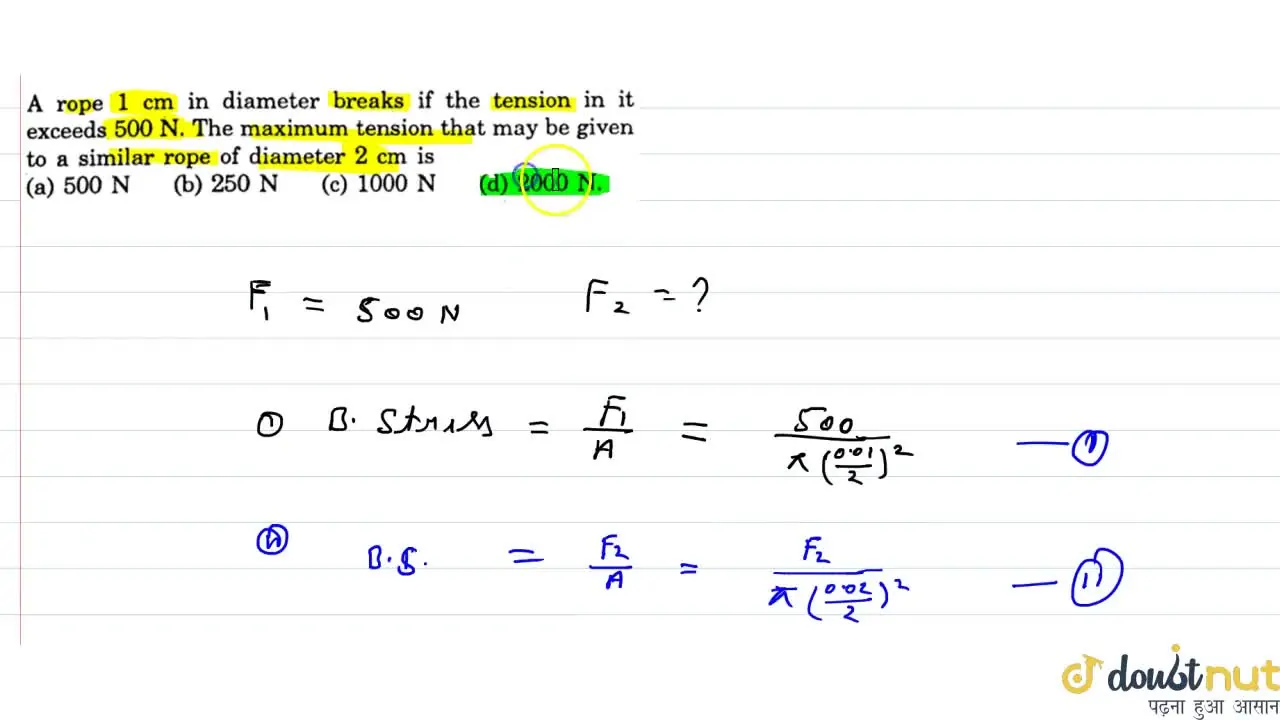 A rope 1 cm in diameter breaks if the tension in it
exceeds 500 N. The maximum tension that may be given
to a similar rope of diameter 2 cm is
(a) 500 N (b) 250 N (c) 1000 N (d) 2000 N.
F₁ = 500 N F₂ = ?
① B. Stress = F₁/A = 500/π(0.01/2)² — ①
② B.S. = F₂/A = F₂/π(0.02/2)² — ⑪
doubtnut
पढ़ना हुआ आसान